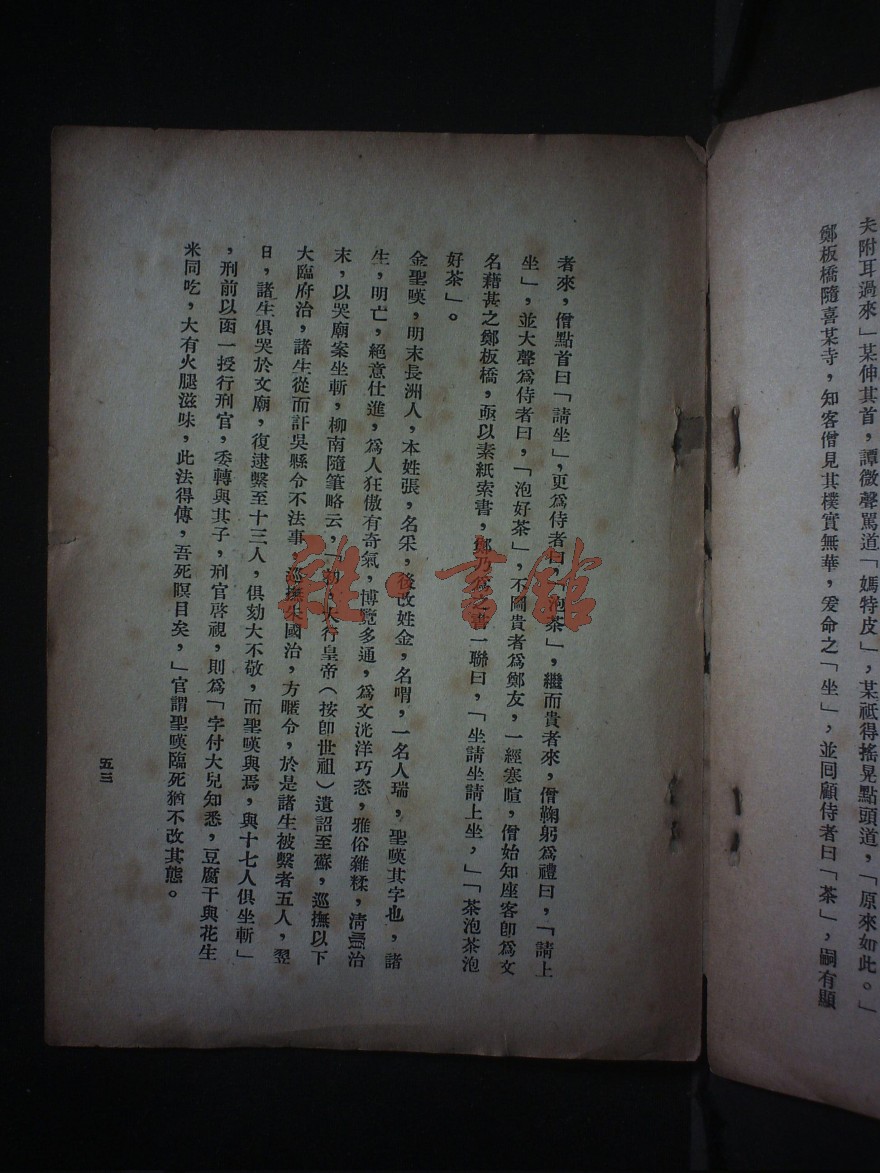 夫附耳過來」某伸其首，譚微聲罵道「媽特皮」，某祗得搖晃點頭道，「原來如此。」
鄭板橋隨喜某寺，知客僧見其樸實無華，爰命之「坐」，並囘顧侍者曰「茶」，嗣有顯
者來，僧點首曰「請坐」，更爲侍者曰，「泡茶」，繼而貴者來，僧鞠躬爲禮曰，「請上
坐」，並大聲爲侍者曰，「泡好茶」，不圖貴者爲鄭友，一經寒暄，僧始知座客卽爲文
名藉甚之鄭板橋，亟以素紙索書，鄭乃爲之書一聯曰，「坐請坐請上坐，」「茶泡茶泡
好茶」。
金聖嘆，明末長洲人，本姓張，名采，後改姓金，名喟，一名人瑞，聖嘆其字也，諸
生，明亡，絕意仕進，爲人狂傲有奇氣，博覽多通，爲文洸洋巧恣，雅俗雜糅，淸順治
末，以哭廟案坐斬，柳南隨筆略云，「大行皇帝（按卽世祖）遺詔至蘇，巡撫以下
大臨府治，諸生從而訐吳縣令不法事，巡撫朱國治，方暱令，於是諸生被繫者五人，翌
日，諸生俱哭於文廟，復逮繫至十三人，俱劾大不敬，而聖嘆與焉，與十七人俱坐斬」
，刑前以函一授行刑官，委轉與其子，刑官啓視，則爲「字付大兒知悉，豆腐干與花生
米同吃，大有火腿滋味，此法得傳，吾死瞑目矣，」官謂聖嘆臨死猶不改其態。
五三
雜·書館